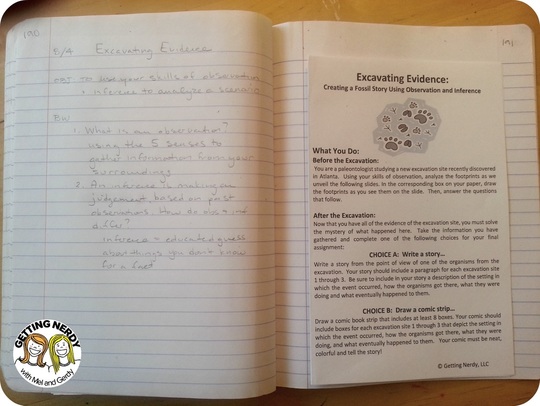 190
8/4 Excavating Evidence
OBJ to use your skills of observation
+ inference to analyze a scenario
BW
1. What is an observation?
using the 5 senses to
gather information from your
surroundings
2. An inference is making a
judgement based on past
observations. How do
differ?
inference = educated guess
about things you don't know
for a fact
191
Excavating Evidence:
Creating a Fossil Story Using Observation and Inference
What You Do:
Before the Excavation:
You are a paleontologist studying a new excavation site recently discovered
in Atlanta. Using your skills of observation, analyze the footprints as we
unveil the following slides. In the corresponding box on your paper, draw
the footprints as you see them on the slide. Then, answer the questions
that follow.
After the Excavation:
Now that you have all of the evidence of the excavation site, you must solve
the mystery of what happened here. Take the information you have
gathered and complete one of the following choices for your final
assignment:
CHOICE A: Write a story...
Write a story from the point of view of one of the organisms from the
excavation. Your story should include a paragraph for each excavation site
1 through 3. Be sure to include in your story a description of the setting in
which the event occurred, how the organisms got there, what they were
doing and what eventually happened to them.
CHOICE B: Draw a comic strip...
Draw a comic book strip that includes at least 8 boxes. Your comic should
include boxes for each excavation site 1 through 3 that depict the setting in
which the event occurred, how the organisms got there, what they were
doing, and what eventually happened to them. Your comic must be neat,
colorful and tell the story!
© Getting Nerdy, LLC
GETTING NERDY
with Mel and Gerdy